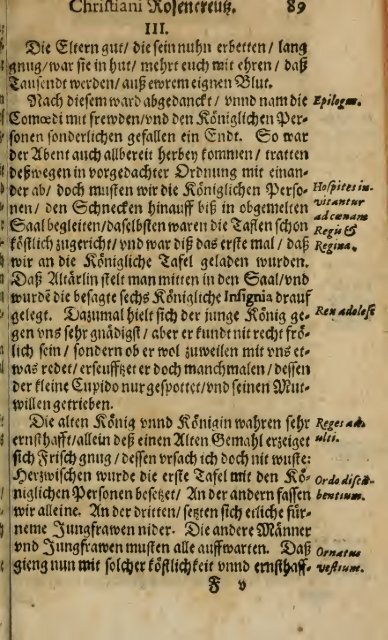 Christiani Rosencreutz. 89
III.
Die Eltern gut/ die sein nuhn erbetten/ lang
gnug/ war sie in hut/ mehrt euch mit ehren/ daß
Tausendt werden/ auß ewrem eignen Blut.
Nach diesem ward abgedanckt/ vnnd nam die Epilogus.
Comœdi mit frewden/ vnd den Königlichen Per-
sonen sonderlichen gefallen ein Endt. So war
der Abent auch allbereit herbey kommen/ tratten
deßwegen in vorgedachter Ordnung mit einan-
der ab/ doch musten wir die Königlichen Perso- Hospites in-
nen/ den Schnecken hinauff biß in obgemelten vitantur
Saal begleiten/ daselbsten waren die Taflen schon ad cœnam
köstlich zugericht/ vnd war diß das erste mal/ daß Regis &
wir an die Königliche Tafel geladen wurden. Regina.
Daß Altärlin stelt man mitten in den Saal/ vnd
wurdē die besagte sechs Königliche Insignia drauf
gelegt. Dazumal hielt sich der junge König ge- Rex adolesc
gen vns sehr gnädigst/ aber er kundt nit recht frö-
lich sein/ sondern ob er wol zuweilen mit vns et-
was redet/ erseufftzet er doch manchmalen/ dessen
der kleine Cupido nur gespottet/ vnd seinen Mut-
willen getrieben.
Die alten König vnnd Königin wahren sehr Reges ad-
ernsthafft/ allein deß einen Alten Gemahl erzeiget ulti.
sich Frisch gnug/ dessen vrsach ich doch nit wuste:
Herzwischen wurde die erste Tafel mit den Kö- Ordo discū-
niglichen Personen besetzet/ An der andern sassen bentium.
wir alleine. An der dritten/ setzten sich etliche für-
neme Jungfrawen nider. Die andere Männer
vnd Jungfrawen musten alle auffwarten. Daß Ornatus
gieng nun mit solcher köstlichkeit vnnd ernsthaff- vestium.
F v